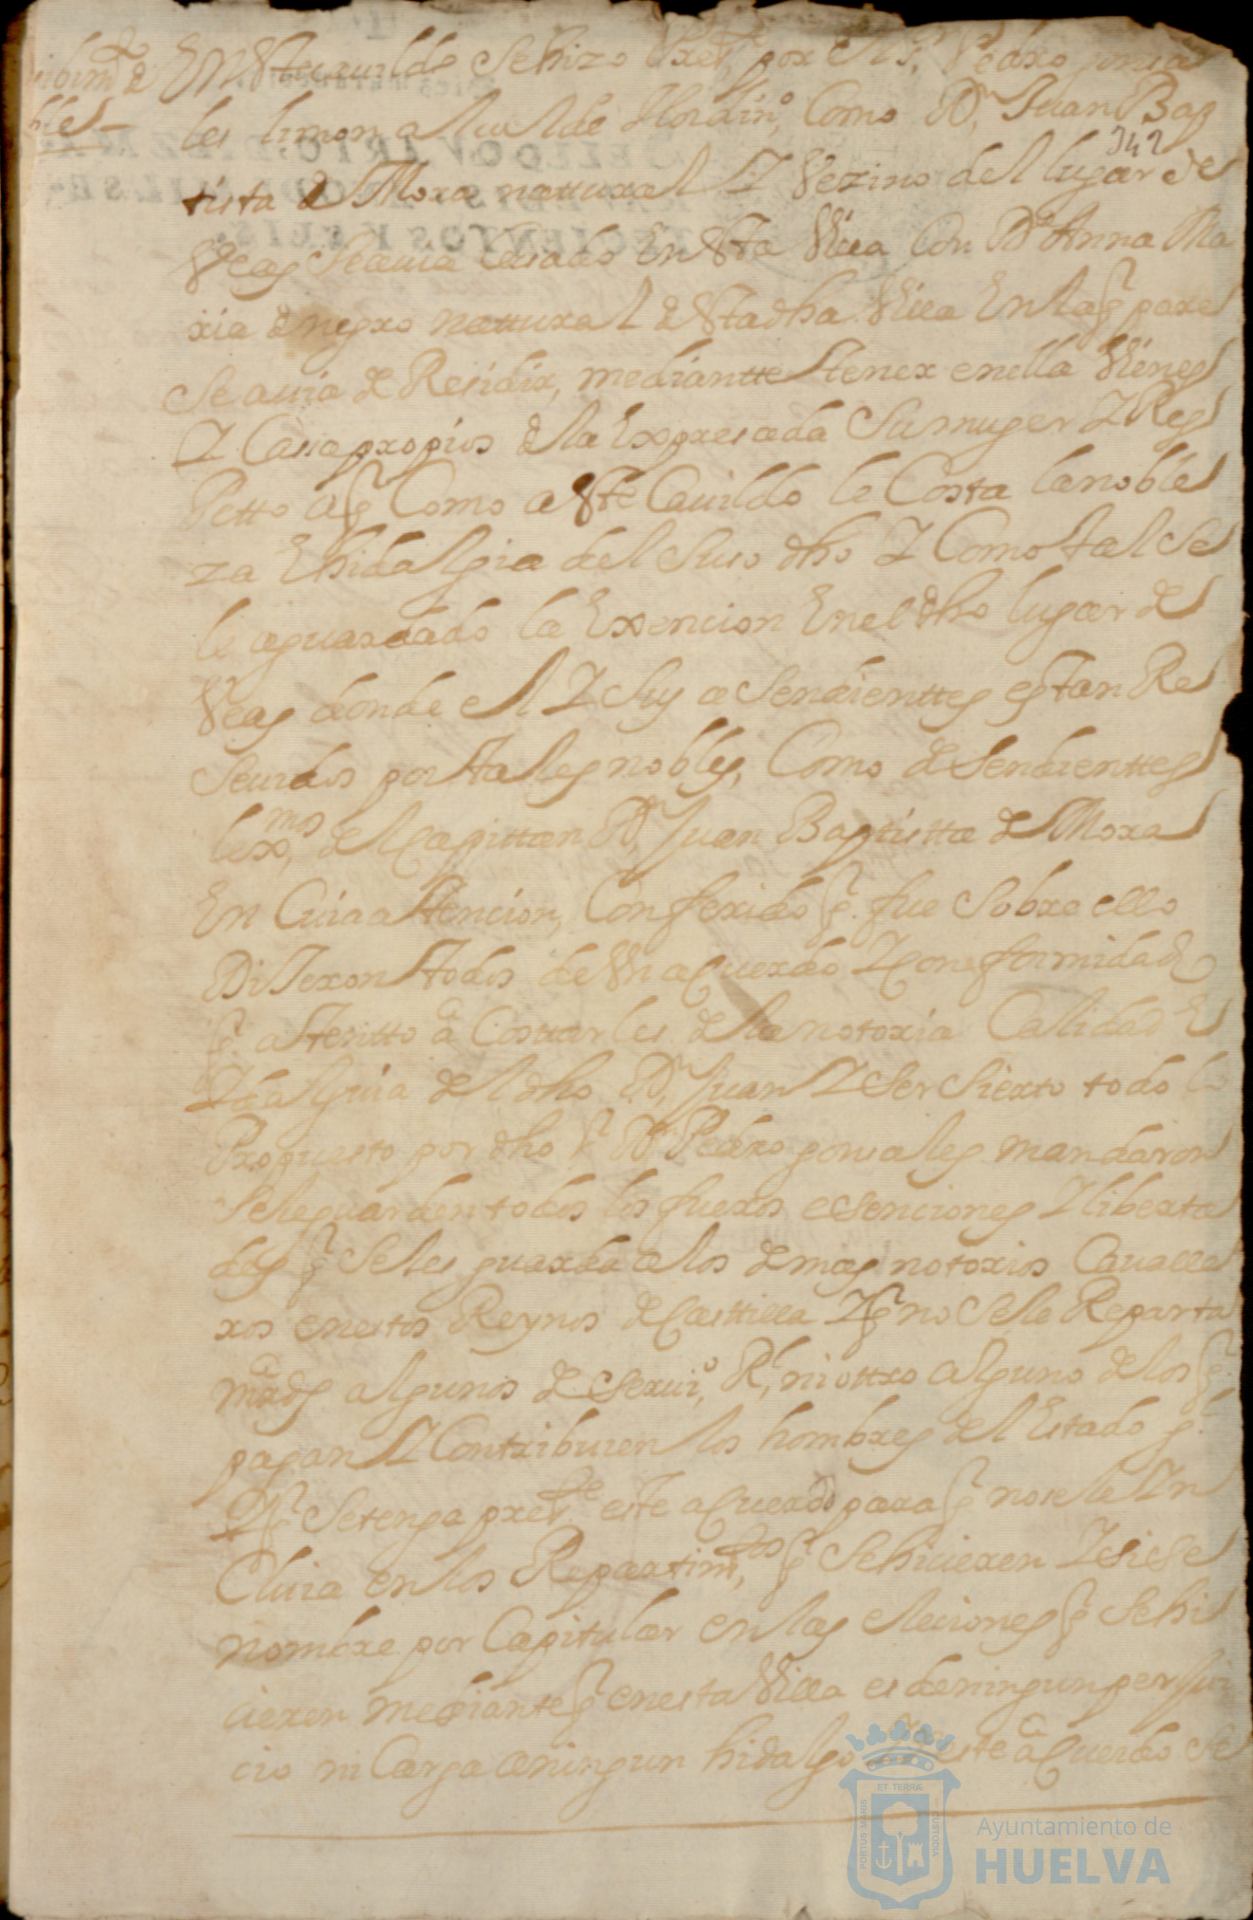 En este cauildo se hizo pres.te por el s.r Pedro gonsa
les limon alcalde Hordin.o, Como D.n Juan Bap
342
tista de Mora natural Y Vezino del lugar de
Veas Se auia casado En Vsta Villa Con D.a Anna Ma
ria de negro natural de Vsta dha Villa En la q.e pare
Se auia de Residir, mediantte tener en ella Vienes
Y Casa propios de la Expresada Su muger Y Res
Petto a q.e Como a Vste Cauildo le Costa la noble
za E hidalgia del Suso dho Y Como tal se
le a guardado la Exsencion En el dho lugar de
Veas donde el Y Sus asendienttes estan Re
Seuidos por tales nobles, Como desendienttes
lex.mos, del Capittan D.n Juan Baptistta de Mora
En Cuia attencion, Conferido q.e fue Sobre ello
Dixeron todos de Vn aCuerdo Y Conformidad
q.e attentto a Costtarles de la notoria Calidad E
Ydalguia del dho D.n Juan Y Ser Sierto todo lo
Propuesto por dho S.r D.n Pedro gonsales mandaron
Se le guarden todos los fueros esenciones Y liberta
des q.e Se les guarda a los demas notorios Caualle
ros en estos Reynos de Casttilla Y q.e no Se le Reparta
mrds. algunos de Serui.o, R.l, ni ottro alguno de los q.e
pagan Y Contribuien los hombres del Estado g.l
Y q.e Se tenga pres.te este aCuerdo para q.e no se le Yn
Cluia en los Repartim.tos, q.e Se hicieren Y si Se
nombre por Capitular en las elesiones q.e Se hi
cieren mediante q.e en esta Villa es de ningun perjui
cio ni Carga a ningun hidalgo este aCuerdo se
ET TERRÆ
PORTUS MARIS
CUSTODIA
Ayuntamiento de
HUELVA